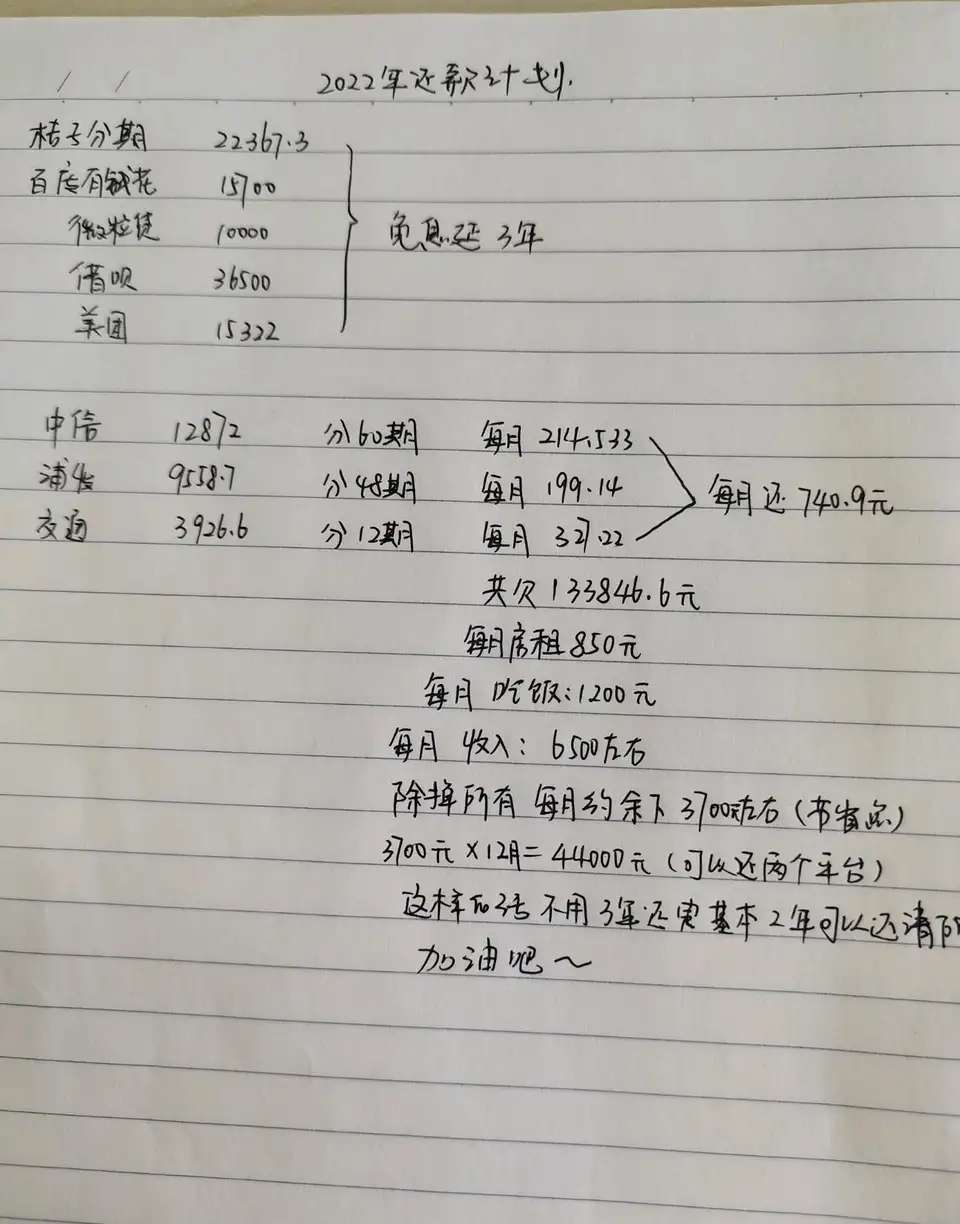 2022年还款计划.
桔子分期 22367.3
百度有钱花 15700
微粒贷 10000
借呗 36500
美团 15322
免息延 3年
中信 12872 分60期 每月 214.533
浦发 9558.7 分48期 每月 199.14
交通 3926.6 分12期 每月 327.22
每月还 740.9元
共欠 133846.6元
每月房租850元
每月 吃饭:1200元
每月 收入: 6500左右
除掉所有 每月约余下 3700左右(节省点)
3700元×12月=44000元(可以还两个平台)
这样的话 不用3年还完基本2年可以还清
加油吧~